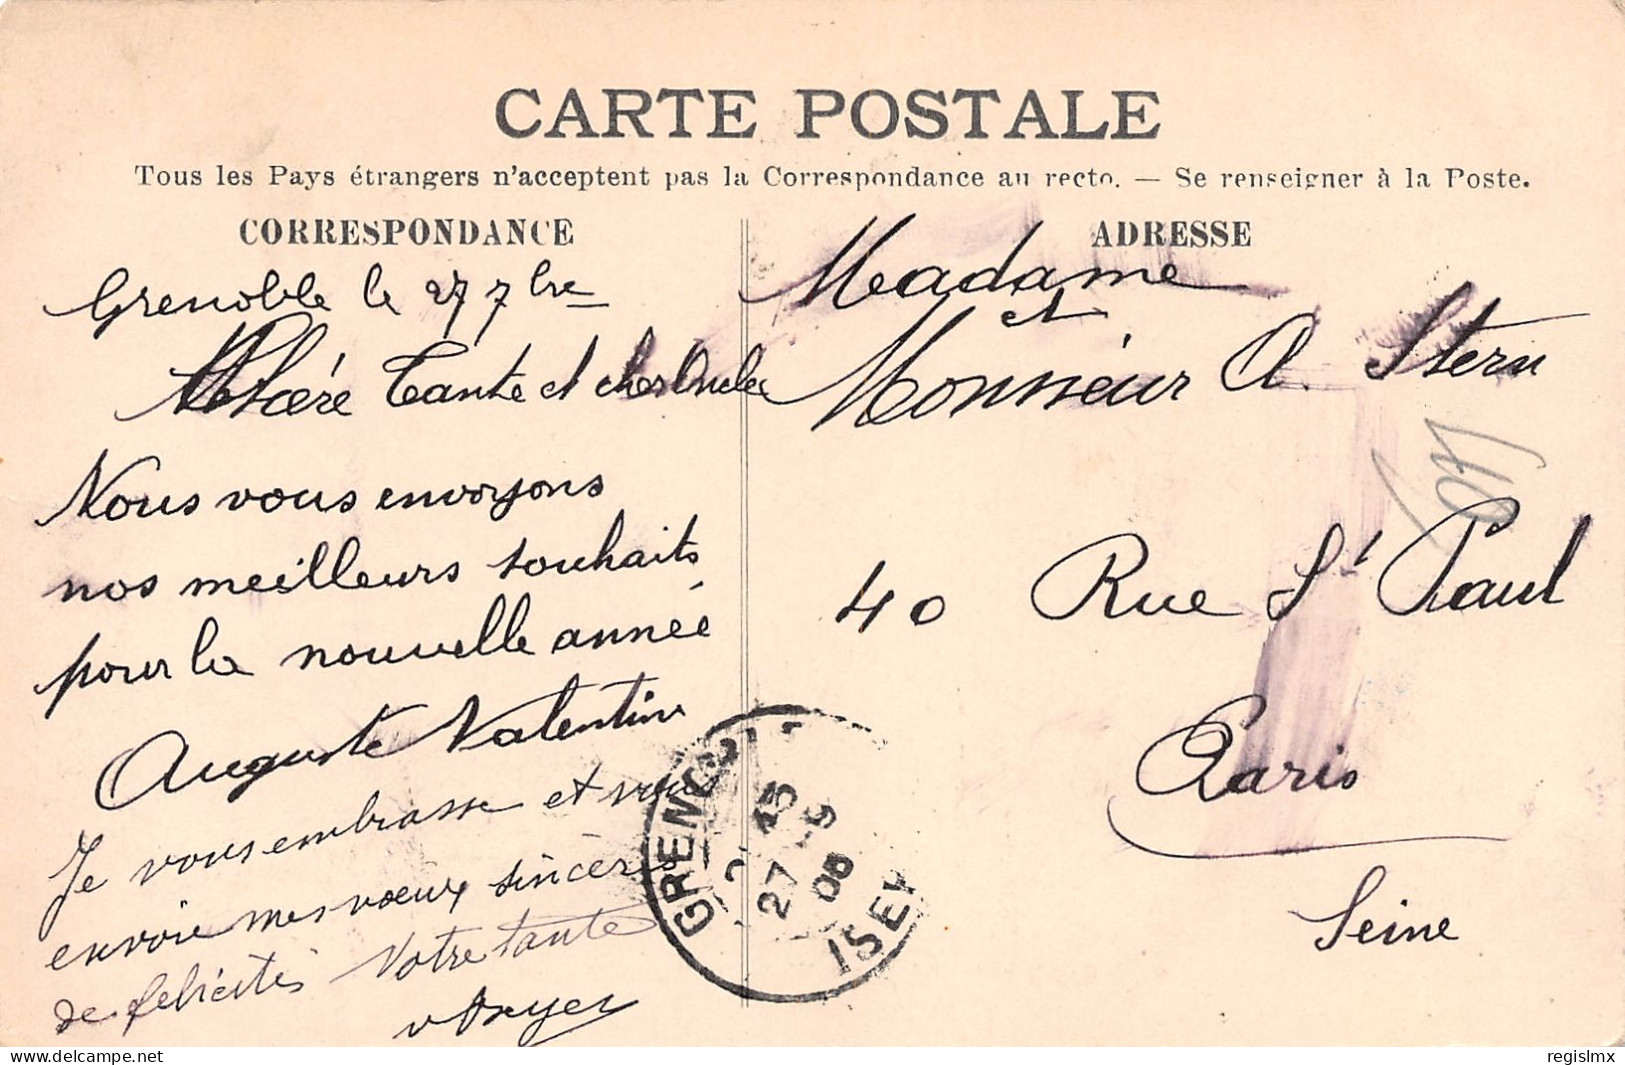 CARTE POSTALE
Tous les Pays étrangers n'acceptent pas la Correspondance au recto. — Se renseigner à la Poste.
CORRESPONDANCE
Grenoble le 27 7bre
Chère Tante et cher Oncle
Nous vous envoyons
nos meilleurs souhaits
pour la nouvelle année
Auguste Valentin
Je vous embrasse et vous
envoie mes vœux sincères
de félicités Votre tante
ADRESSE
Madame
et
Monsieur A. Stern
40 Rue St Paul
Paris
Seine
GRENOBLE
15
27 -9
06
ISER
delcampe.net
regislmx